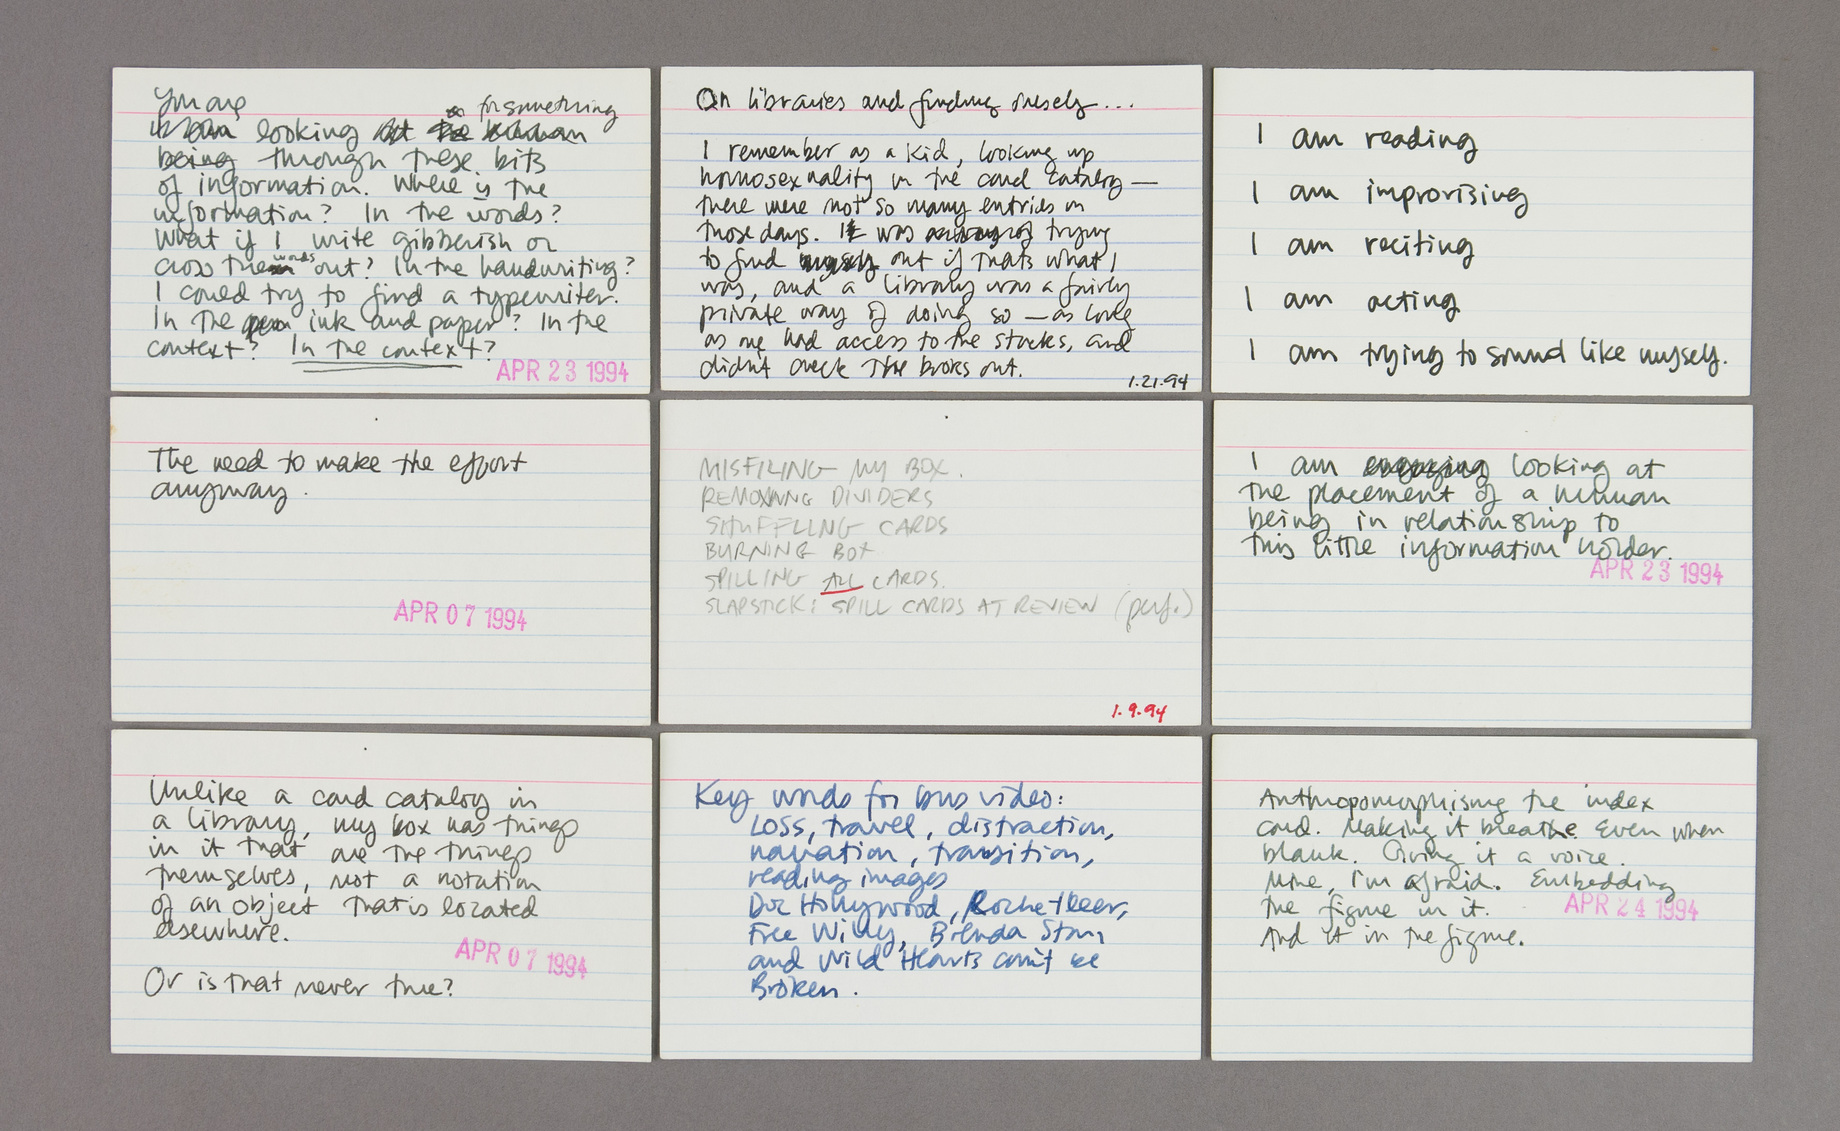 You are
for something
looking
being through these bits
of information. Where is the
information? In the words?
What if I write gibberish or
cross the words out? In the handwriting?
I could try to find a typewriter.
In the pen ink and paper? In the
context? In the context?
APR 23 1994
On libraries and finding onesely...
I remember as a kid, looking up
homosexuality in the card catalog—
there were not so many entries in
those days. It was trying
to find myself out if thats what I
was, and a library was a fairly
private way of doing so — as long
as one had access to the stacks, and
didn't check the books out.
1.21.94
I am reading
I am improvising
I am reciting
I am acting
I am trying to sound like myself.
The need to make the effort
anyway.
APR 07 1994
MISFILING MY BOX.
REMOVING DIVIDERS
SHUFFLING CARDS
BURNING BOX
SPILLING ALL CARDS.
SLAPSTICK: SPILL CARDS AT REVIEW (perf.)
1.9.94
I am engaging looking at
the placement of a human
being in relationship to
this little information holder.
APR 23 1994
Unlike a card catalog in
a library, my box has things
in it that are the things
themselves, not a notation
of an object that is located
elsewhere.
APR 07 1994
Or is that never true?
Key words for bus video:
Loss, travel, distraction,
narration, transition,
reading images
Doc Hollywood, Rocketeer,
Free Willy, Brenda Starr,
and Wild Hearts can't be
Broken.
Anthropomorphising the index
card. Making it breathe even when
blank. Giving it a voice.
Mine, I'm afraid. Embedding
the figure in it.
APR 24 1994
And it in the figure.